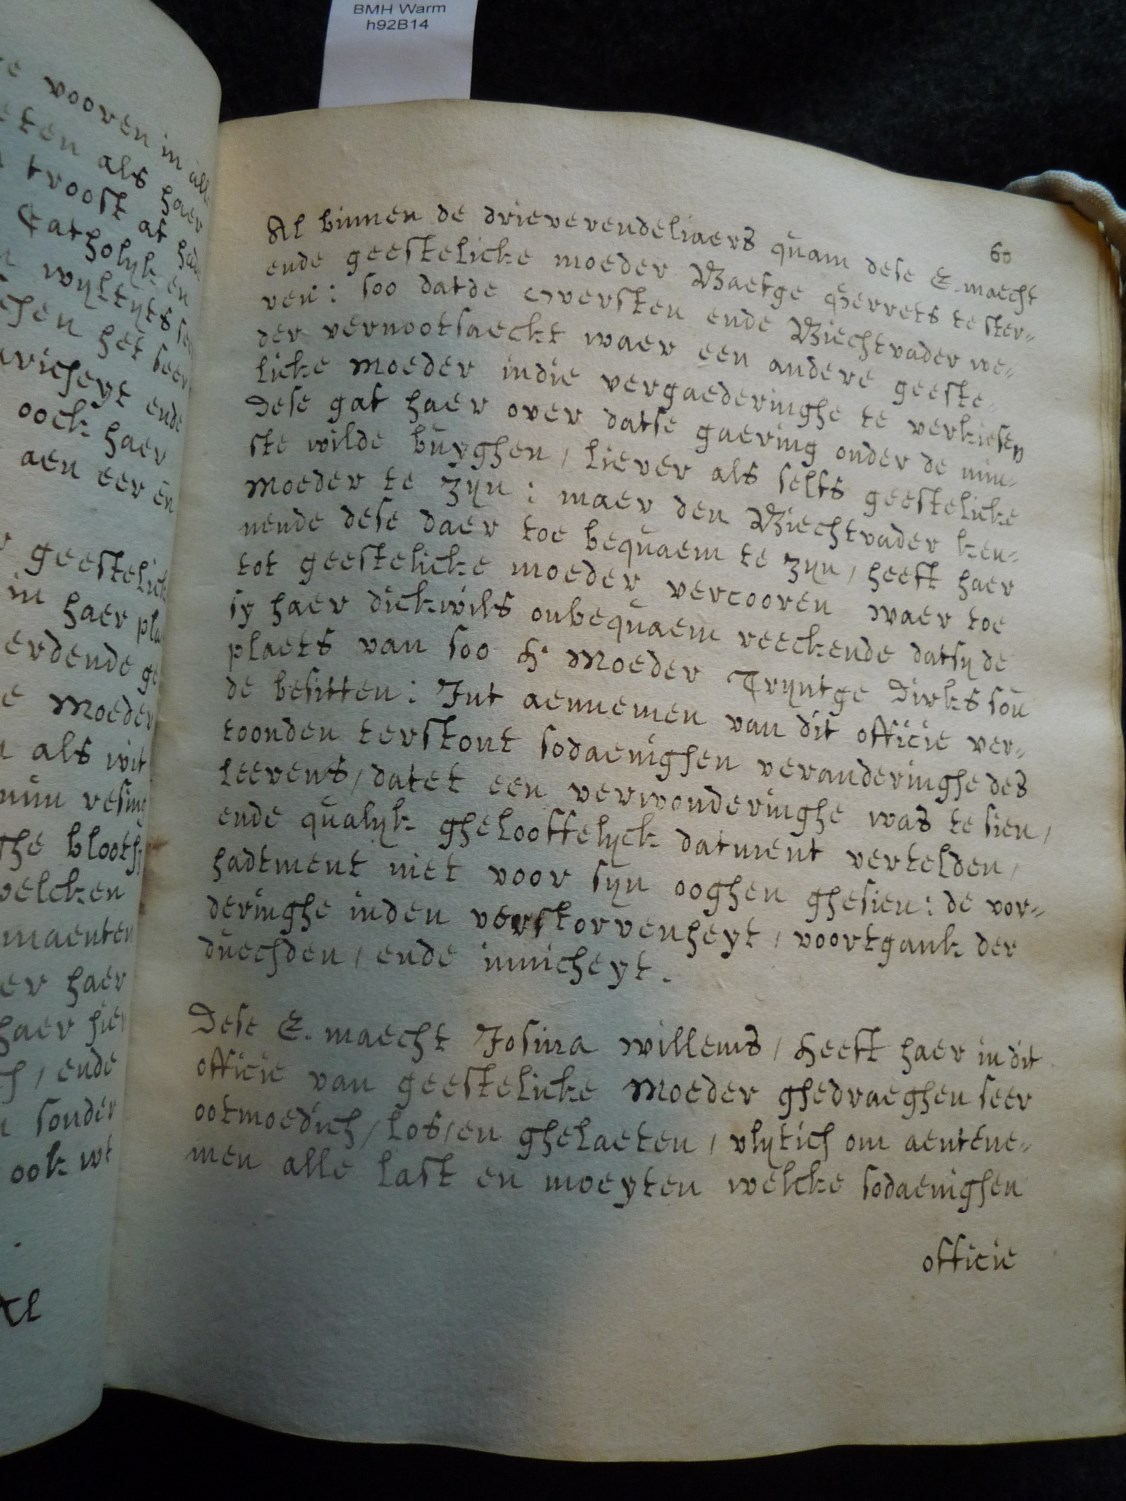 BMH Warm
h92B14
e vooren in all
eten als haer
troost at had
Catholyk en
wyltyts se
chen het seer
aricheyt ende
oock haer
aen eer en
geestelick
in haer pla
erdende ge
e Moeder
als wit
nun resing
ghe blooth
welcken
maenten
er haer
haer hier
ch / ende
sonder
ook wt
Al
60
Al binnen de drieverendeliaers quam dese E. maecht
ende geestelicke moeder Baefge Gerrets te ster-
ven: soo datde Oversten ende Biechtvader we-
der vernootsaeckt waer een andere geeste-
licke Moeder indie vergaederinghe te verkiesen
Dese gaf haer over datse gaering onder de min-
ste wilde buyghen / liever als selfs geestelicke
Moeder te zyn: maer den Biechtvader ken-
nende dese daer toe bequaem te zyn / heeft haer
tot geestelicke moeder vercooren waer toe
sy haer dickwils onbequaem reeckende datsy de
plaets van soo H. Moeder Tryntge Dirks sou
de besitten: Int aennemen van dit officie ver-
toonden terstont sodaenighen veranderinghe des
leevens / datet een verwonderinghe was te sien /
ende qualyk ghelooffelyck datment vertelden /
hadtment niet voor syn ooghen ghesien: de vor-
deringhe inden verstorvenheyt / voortgank der
duechden / ende innicheyt.
Dese E. maecht Josina willems / heeft haer in dit
officie van geestelicke Moeder ghedraeghen seer
ootmoedich / los / en ghelaeten / vlytich om aentene-
men alle last en moeyten welcke sodaenighen
officie